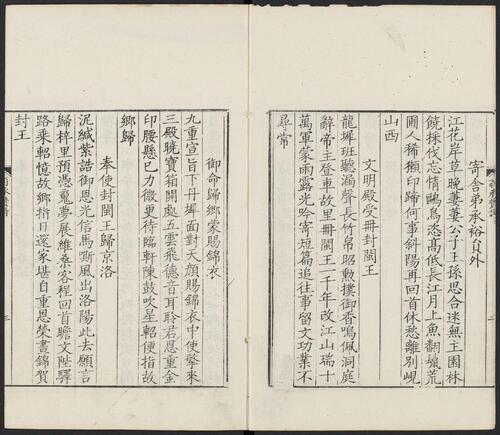 寄舍弟承裕員外
江花岸草晚萋萋公子王孫思合迷無主園林
饒採伐忘情鷗鳥恣高低長江月上魚翻鬣荒
圃人稀獺印蹄何事斜陽再回首休愁離别峴
山西
文明殿受冊封閩王
龍墀班聽漏聲長竹帛昭勲撲御香鳴佩洞庭
辭帝主登車故里冊閩王一千年改江山瑞十
萬軍蒙雨露光吟寄短篇追往事留文功業不
尋常
御命歸鄉蒙賜錦衣
九重宣旨下丹墀面對天顔賜錦衣中使擎來
三殿曉寶箱開處五雲飛德音耳聆君恩重金
印腰懸已力微更待臨軒陳鼓吹星軺便指故
鄉歸
奉使封閩王歸京洛
泥緘紫誥御恩光信馬嘶風出洛陽此去願言
歸梓里預憑䰟夢展維桑客程回首瞻文陛驛
路乘軺憶故鄉指日還家堪自重恩榮晝錦賀
封王